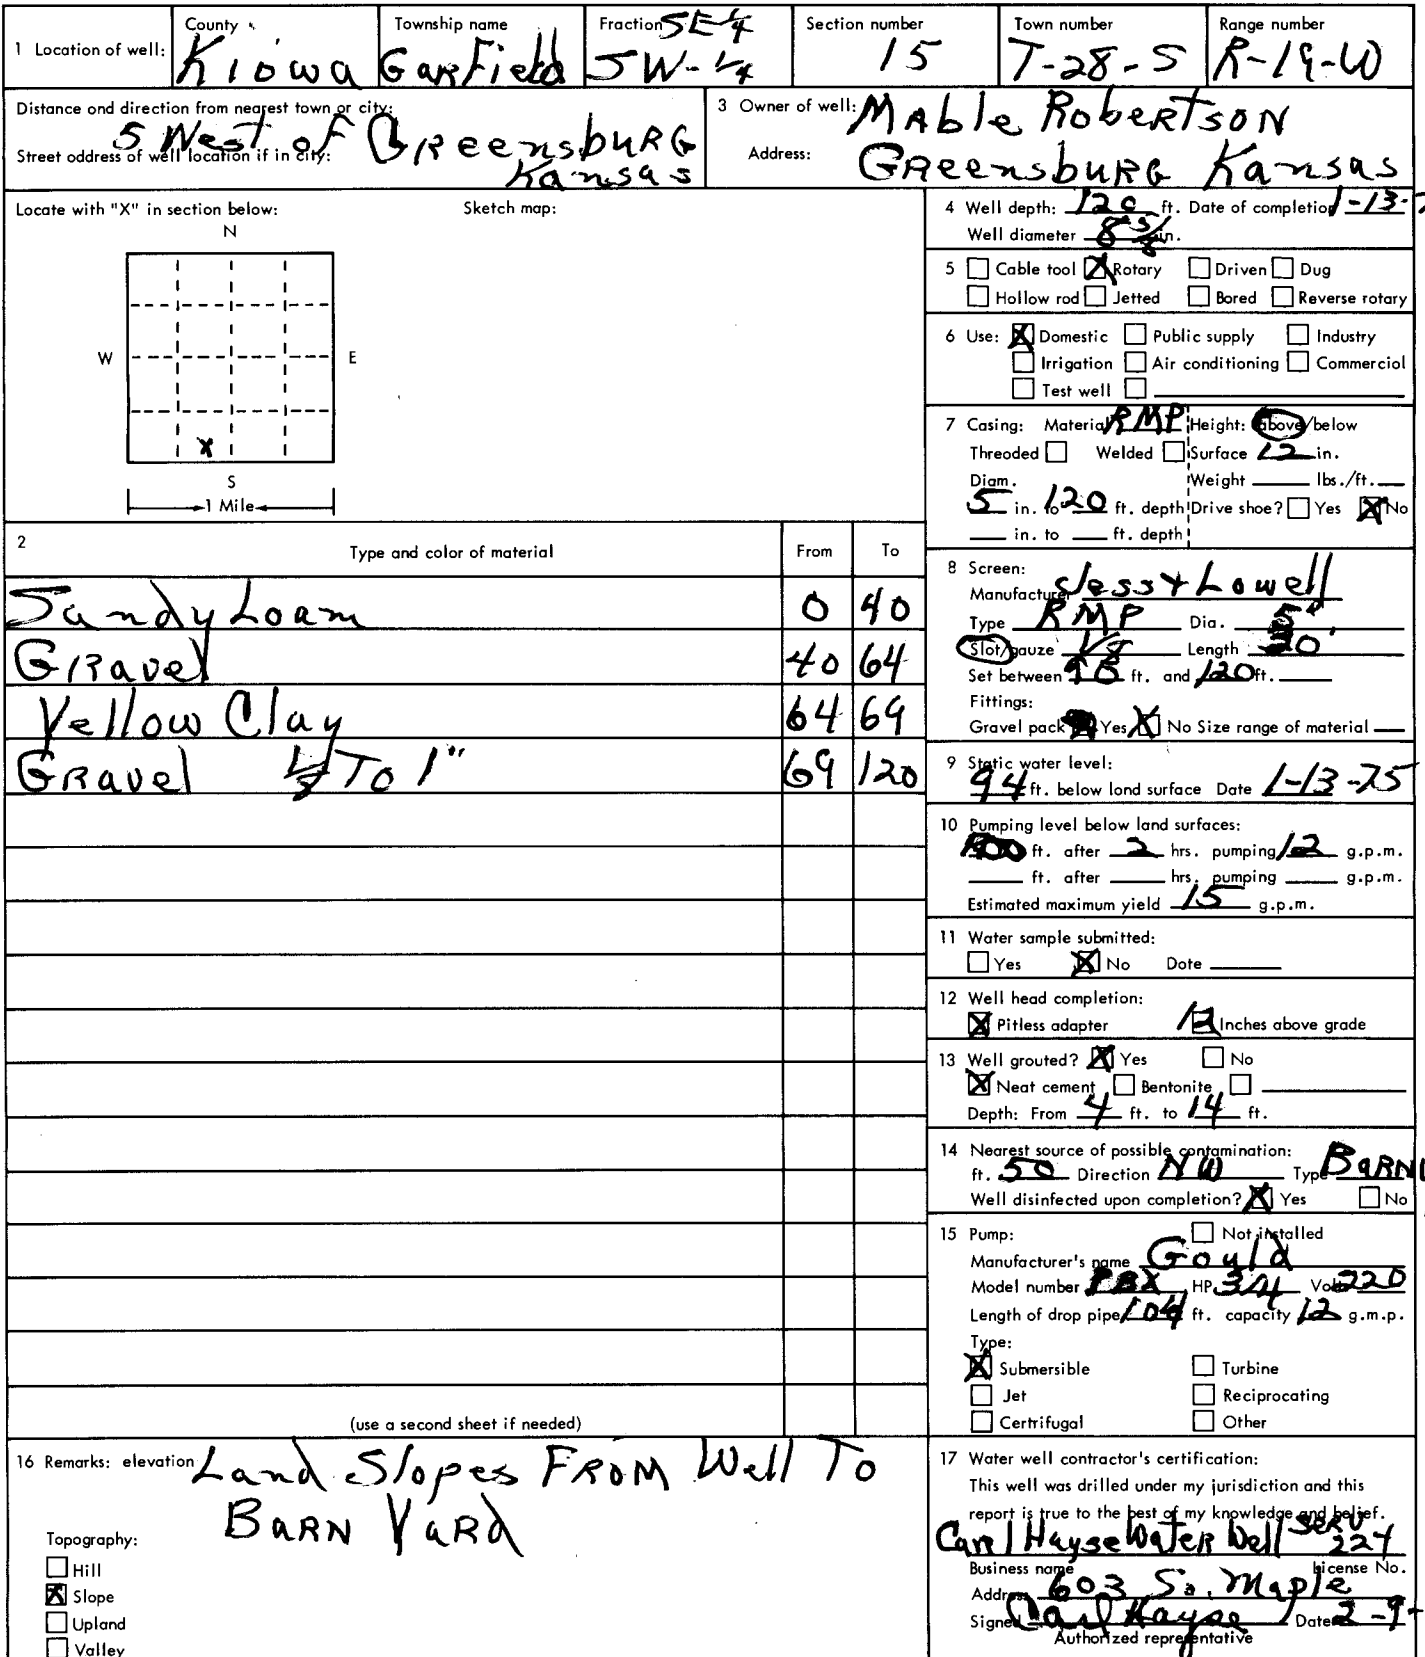 1 Location of well: County Kiowa Township name Garfield Fraction SE 1/4 SW-1/4 Section number 15 Town number T-28-S Range number R-19-W
Distance and direction from nearest town or city: 5 West of Greensburg Kansas
Street address of well location if in city:
3 Owner of well: Mable Robertson
Address: Greensburg Kansas
Locate with "X" in section below: Sketch map:
N
W E
X
S
1 Mile
2 Type and color of material From To
Sandy Loam 0 40
Gravel 40 64
Yellow Clay 64 69
Gravel 1/8 To 1" 69 120
(use a second sheet if needed)
4 Well depth: 120 ft. Date of completion 1-13-
Well diameter 8 5/8 in.
5 Cable tool X Rotary Driven Dug
Hollow rod Jetted Bored Reverse rotary
6 Use: X Domestic Public supply Industry
Irrigation Air conditioning Commercial
Test well
7 Casing: Material RMP Height: above/below
Threaded Welded Surface 12 in.
Diam. Weight lbs./ft.
5 in. to 120 ft. depth Drive shoe? Yes X No
in. to ft. depth
8 Screen:
Manufacturer Jess & Lowell
Type RMP Dia. 5"
Slot/gauze 1/8 Length 20'
Set between ft. and 120 ft.
Fittings:
Gravel pack Yes X No Size range of material
9 Static water level:
94 ft. below land surface Date 1-13-75
10 Pumping level below land surfaces:
100 ft. after 2 hrs. pumping 12 g.p.m.
ft. after hrs. pumping g.p.m.
Estimated maximum yield 15 g.p.m.
11 Water sample submitted:
Yes X No Date
12 Well head completion:
X Pitless adapter 12 Inches above grade
13 Well grouted? X Yes No
X Neat cement Bentonite
Depth: From 4 ft. to 14 ft.
14 Nearest source of possible contamination:
ft. 50 Direction NW Type Barn
Well disinfected upon completion? X Yes No
15 Pump: Not installed
Manufacturer's name Gould
Model number HP 3/4 Volts 220
Length of drop pipe 104 ft. capacity 12 g.m.p.
Type:
X Submersible Turbine
Jet Reciprocating
Certrifugal Other
16 Remarks: elevation Land Slopes From Well To
Barn Yard
Topography:
Hill
X Slope
Upland
Valley
17 Water well contractor's certification:
This well was drilled under my jurisdiction and this
report is true to the best of my knowledge and belief.
Carl Hayse Water Well Serv 224
Business name License No.
Address 603 So. Maple
Signed Carl Hayse Date 2-9-
Authorized representative